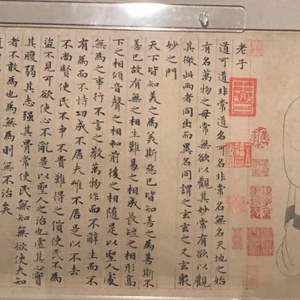 老子
道可道非常道名可名非常名無名天地之始
有名萬物之母常無欲以觀其妙常有欲以觀
其徼此兩者同出而異名同謂之玄玄之又玄衆
妙之門
天下皆知美之為美斯惡已皆知善之為善斯不
善已故有無之相生難易之相成長短之相形高
下之相傾音聲之相和前後之相隨是以聖人處
無為之事行不言之教萬物作而不辭生而不
有為而不恃功成不居夫唯不居是以不去
不尚賢使民不爭不貴難得之貨使民不為
盜不見可欲使心不亂是以聖人之治也虛其心實
其腹弱其志強其骨常使民無知無欲使夫知
者不敢為也為無為則無不治矣